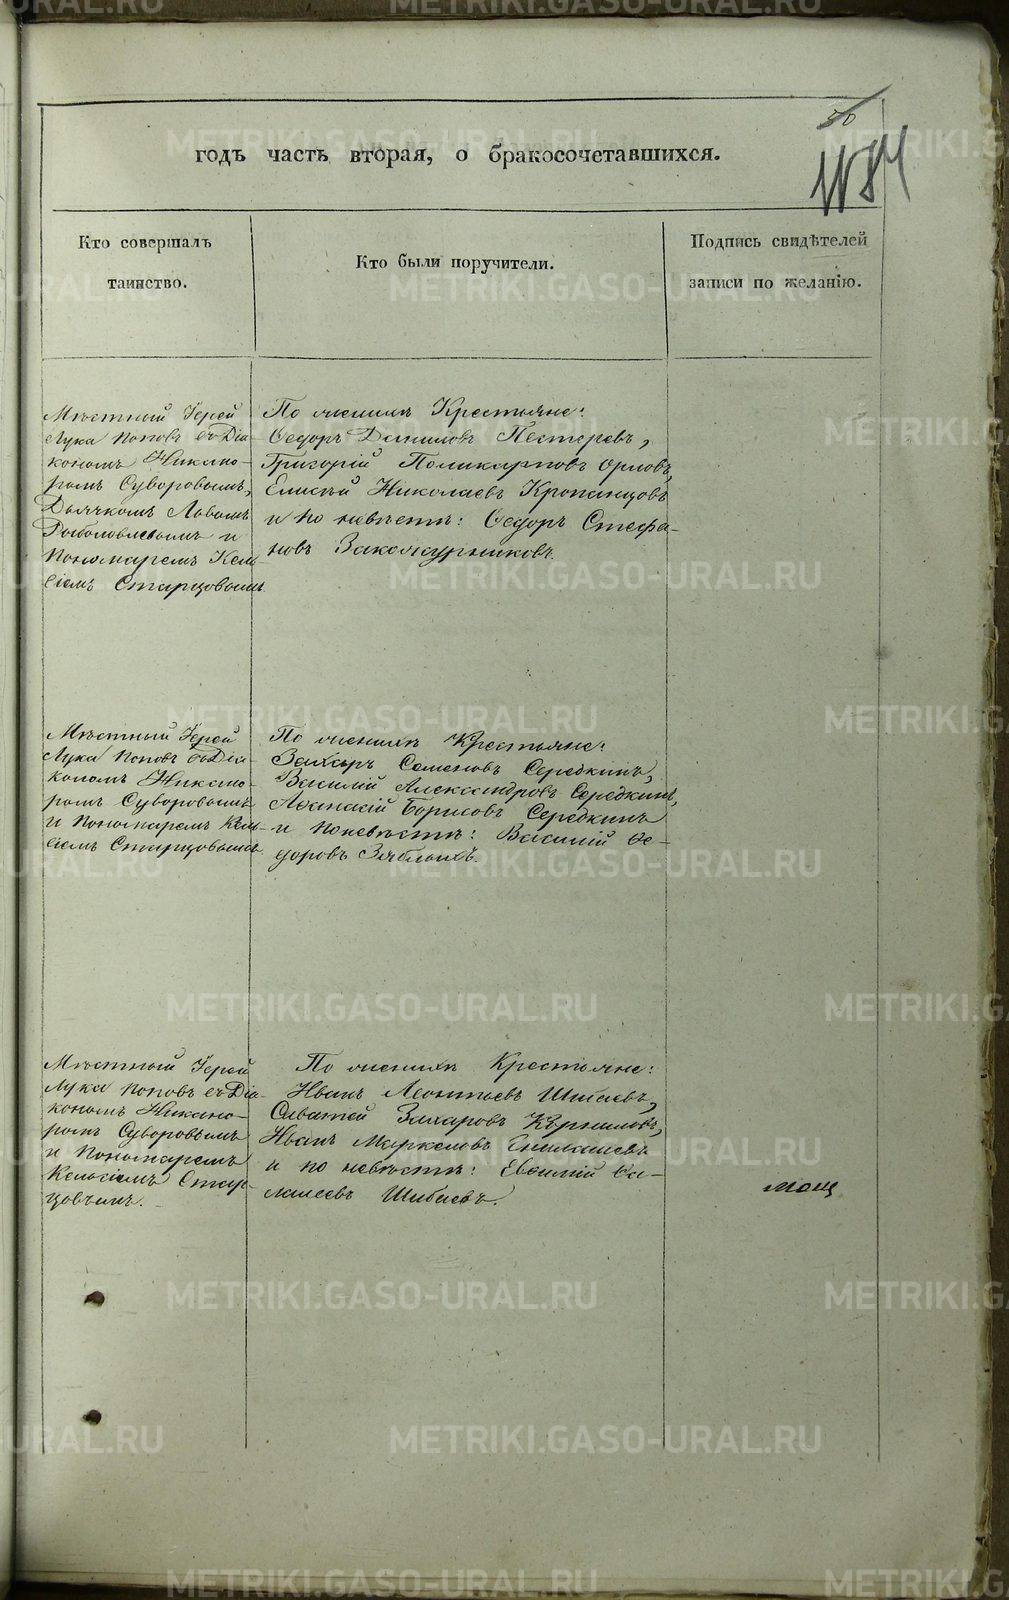 30
1184
годъ часть вторая, о бракосочетавшихся.
Кто совершалъ
таинство.
Кто были поручители.
Подпись свидѣтелей
записи по желанію.
Мѣстный Іерей
Лука Поповъ съ Діа-
кономъ Никано-
ромъ Суворовымъ,
Дьячкомъ
и
Пономаремъ Кель-
сіемъ Старцовымъ
По женихѣ Крестьяне:
Ѳедоръ Даниловъ Пестеревъ,
Григорій Поликарповъ Орловъ,
Елисѣй Николаевъ
и по невѣстѣ: Ѳедоръ Стефа-
новъ Закожурниковъ.
Мѣстный Іерей
Лука Поповъ съ Діа-
кономъ Никано-
ромъ Суворовымъ
и Пономаремъ Кель-
сіемъ Старцовымъ.
По женихѣ Крестьяне:
Захаръ Семеновъ Середкинъ,
Василій Александровъ Середкинъ,
Аѳанасій Борисовъ Середкинъ
и по невѣстѣ: Василій Ѳе-
доровъ Зяблыхъ.
Мѣстный Іерей
Лука Поповъ съ Діа-
кономъ Никано-
ромъ Суворовымъ
и Пономаремъ
Кельсіемъ Стар-
цовымъ.
По женихѣ Крестьяне:
Иванъ Леонтьевъ Шибаевъ,
Савватей Захаровъ Корниловъ,
Иванъ Маркеловъ
и по невѣстѣ: Евсимій
Шибаевъ.
METRIKI.GASO-URAL.RU